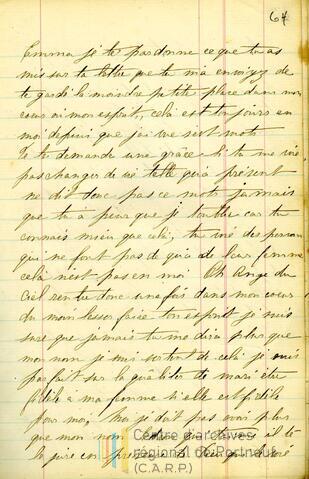 64
Emma je te pardonne ce que tu as
mis sur ta lettre que tu m'a envoyez de
te gardé la moindre petite place dans mon
cœur ni mon esprit, celà est toujours en
moi depuis que j'ai vue seul mote
Je te demande une grâce si tu me vois
pas changer de vie telle qu'a présent
ne dit donc pas ce mote jamais
que tu à peur que je car tu
connais mieu que celà, tu voé des personne
qui ne font pas de qu'a de leur femme
celà n'est pas en moi Oh Ange du
Ciel rentre donc une fois dans mon cœur
du moin lesser faire ton esprit je suis
sure que jamais tu me dira plus que
mon nom je mis de celà je suis
parfait sur la quâlitér de mari être
fidèle a ma femme si elle est fidèle
pour moi, Moi je doit pas avoir plus
que mon nom il te
jure en présence
Centre d'archives
régional de Portneuf
(C.A.R.P.)